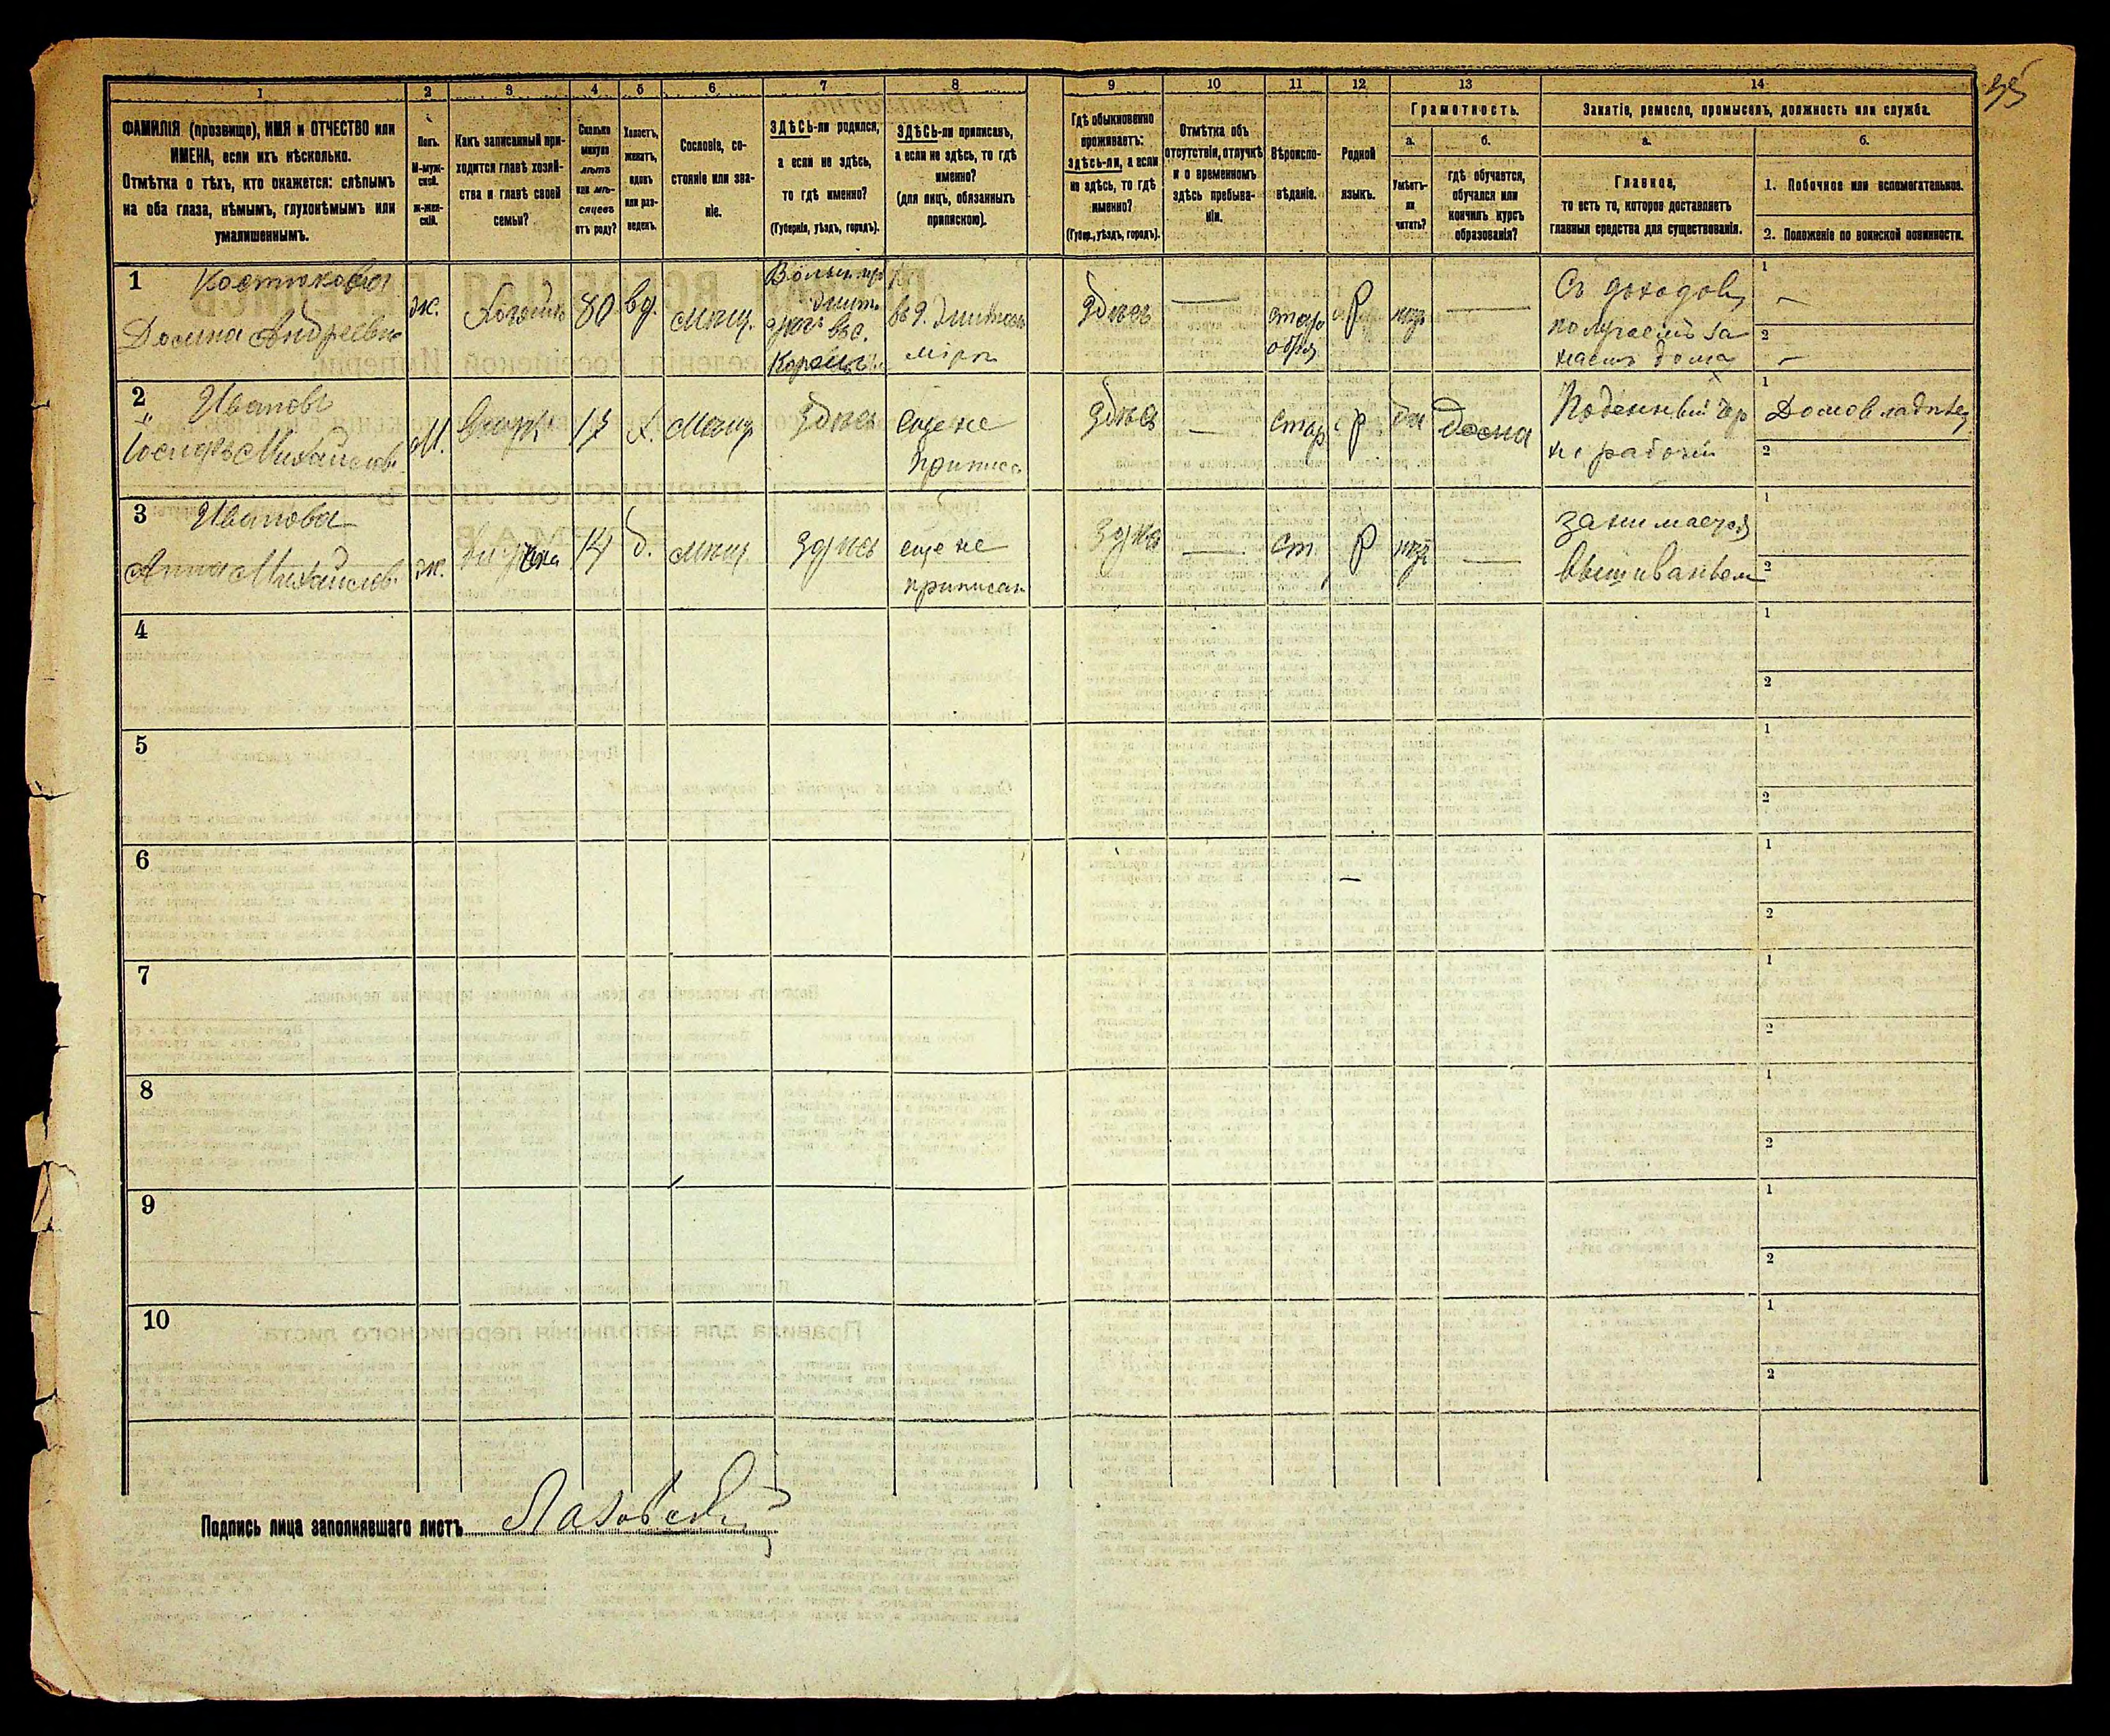 35
1 2 3 4 5 6 7 8 9 10 11 12 13 14
ФАМИЛІЯ (прозвище), ИМЯ и ОТЧЕСТВО или
ИМЕНА, если ихъ нѣсколько.
Отмѣтка о тѣхъ, кто окажется: слѣпымъ
на оба глаза, нѣмымъ, глухонѣмымъ или
умалишеннымъ.
Полъ.
М-муж-
ской.
ж-жен-
скій.
Какъ записанный при-
ходится главѣ хозяй-
ства и главѣ своей
семьи?
Сколько
минуло
лѣтъ
или мѣ-
сяцевъ
отъ роду?
Холостъ,
женатъ,
вдовъ
или раз-
веденъ.
Сословіе, со-
стояніе или зва-
ніе.
ЗДѢСЬ-ли родился,
а если не здѣсь,
то гдѣ именно?
(Губернія, уѣздъ, городъ).
ЗДѢСЬ-ли приписанъ,
а если не здѣсь, то гдѣ
именно?
(для лицъ, обязанныхъ
припискою).
Гдѣ обыкновенно
проживаетъ:
здѣсь-ли, а если
не здѣсь, то гдѣ
именно?
(Губер., уѣздъ, городъ).
Отмѣтка объ
отсутствіи, отлучкѣ
и о временномъ
здѣсь пребыва-
ніи.
Вѣроиспо-
вѣданіе.
Родной
языкъ.
Грамотность.
а.
Умѣетъ-
ли
читать?
б.
гдѣ обучается,
обучался или
кончилъ курсъ
образованія?
Занятіе, ремесло, промыселъ, должность или служба.
а.
Главное,
то есть то, которое доставляетъ
главныя средства для существованія.
б.
1. Побочное или вспомогательное.
2. Положеніе по воинской повинности.
1 Костюкова
Домна Андреевна
ж.
80
вд.
мѣщ.
здѣсь
—
старо
обряд
Р
—
Съ доходовъ
получаемъ за
наемъ дома
1 —
2 —
2 Ивановъ
Іосифъ Михайлов.
М.
внукъ
17
х.
мѣщ.
здѣсь
еще не
приписа
здѣсь
—
стар
р
да
дома
Поденный чер
но рабочій
1 Домовладѣлец
2
3 Иванова
Анна Михайлов.
ж.
внучка
14
д.
мѣщ.
здѣсь
еще не
приписан
здѣсь
—
ст.
Р
—
занимается
вышиваньем
1
2
4
1
2
5
1
2
6
—
1
2
7
1
2
8
1
2
9
1
2
10
1
2
Подпись лица заполнявшаго листъ